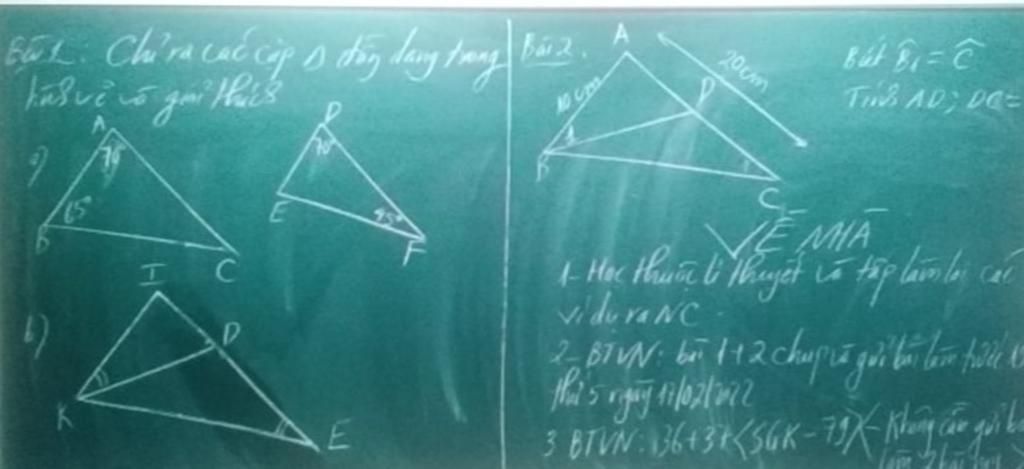 Bài 1: Chỉ ra các cặp Δ đồng dạng trong
hình vẽ và giải thích
a)
A
70°
65°
B
C
D
70°
E
45°
F
b)
I
D
K
E
Bài 2.
A
10cm
20cm
D
1
B
C
Biết B̂₁ = Ĉ
Tính AD; DC =
VỀ NHÀ
1- Học thuộc lí thuyết và tập làm lại các
ví dụ ra NC
2- BTVN: bài 1+2 chụp và gửi bài làm trước
thứ 5 ngày 17/02/2022
3 BTVN: 36+37 (SGK - 79) - Không cần gửi